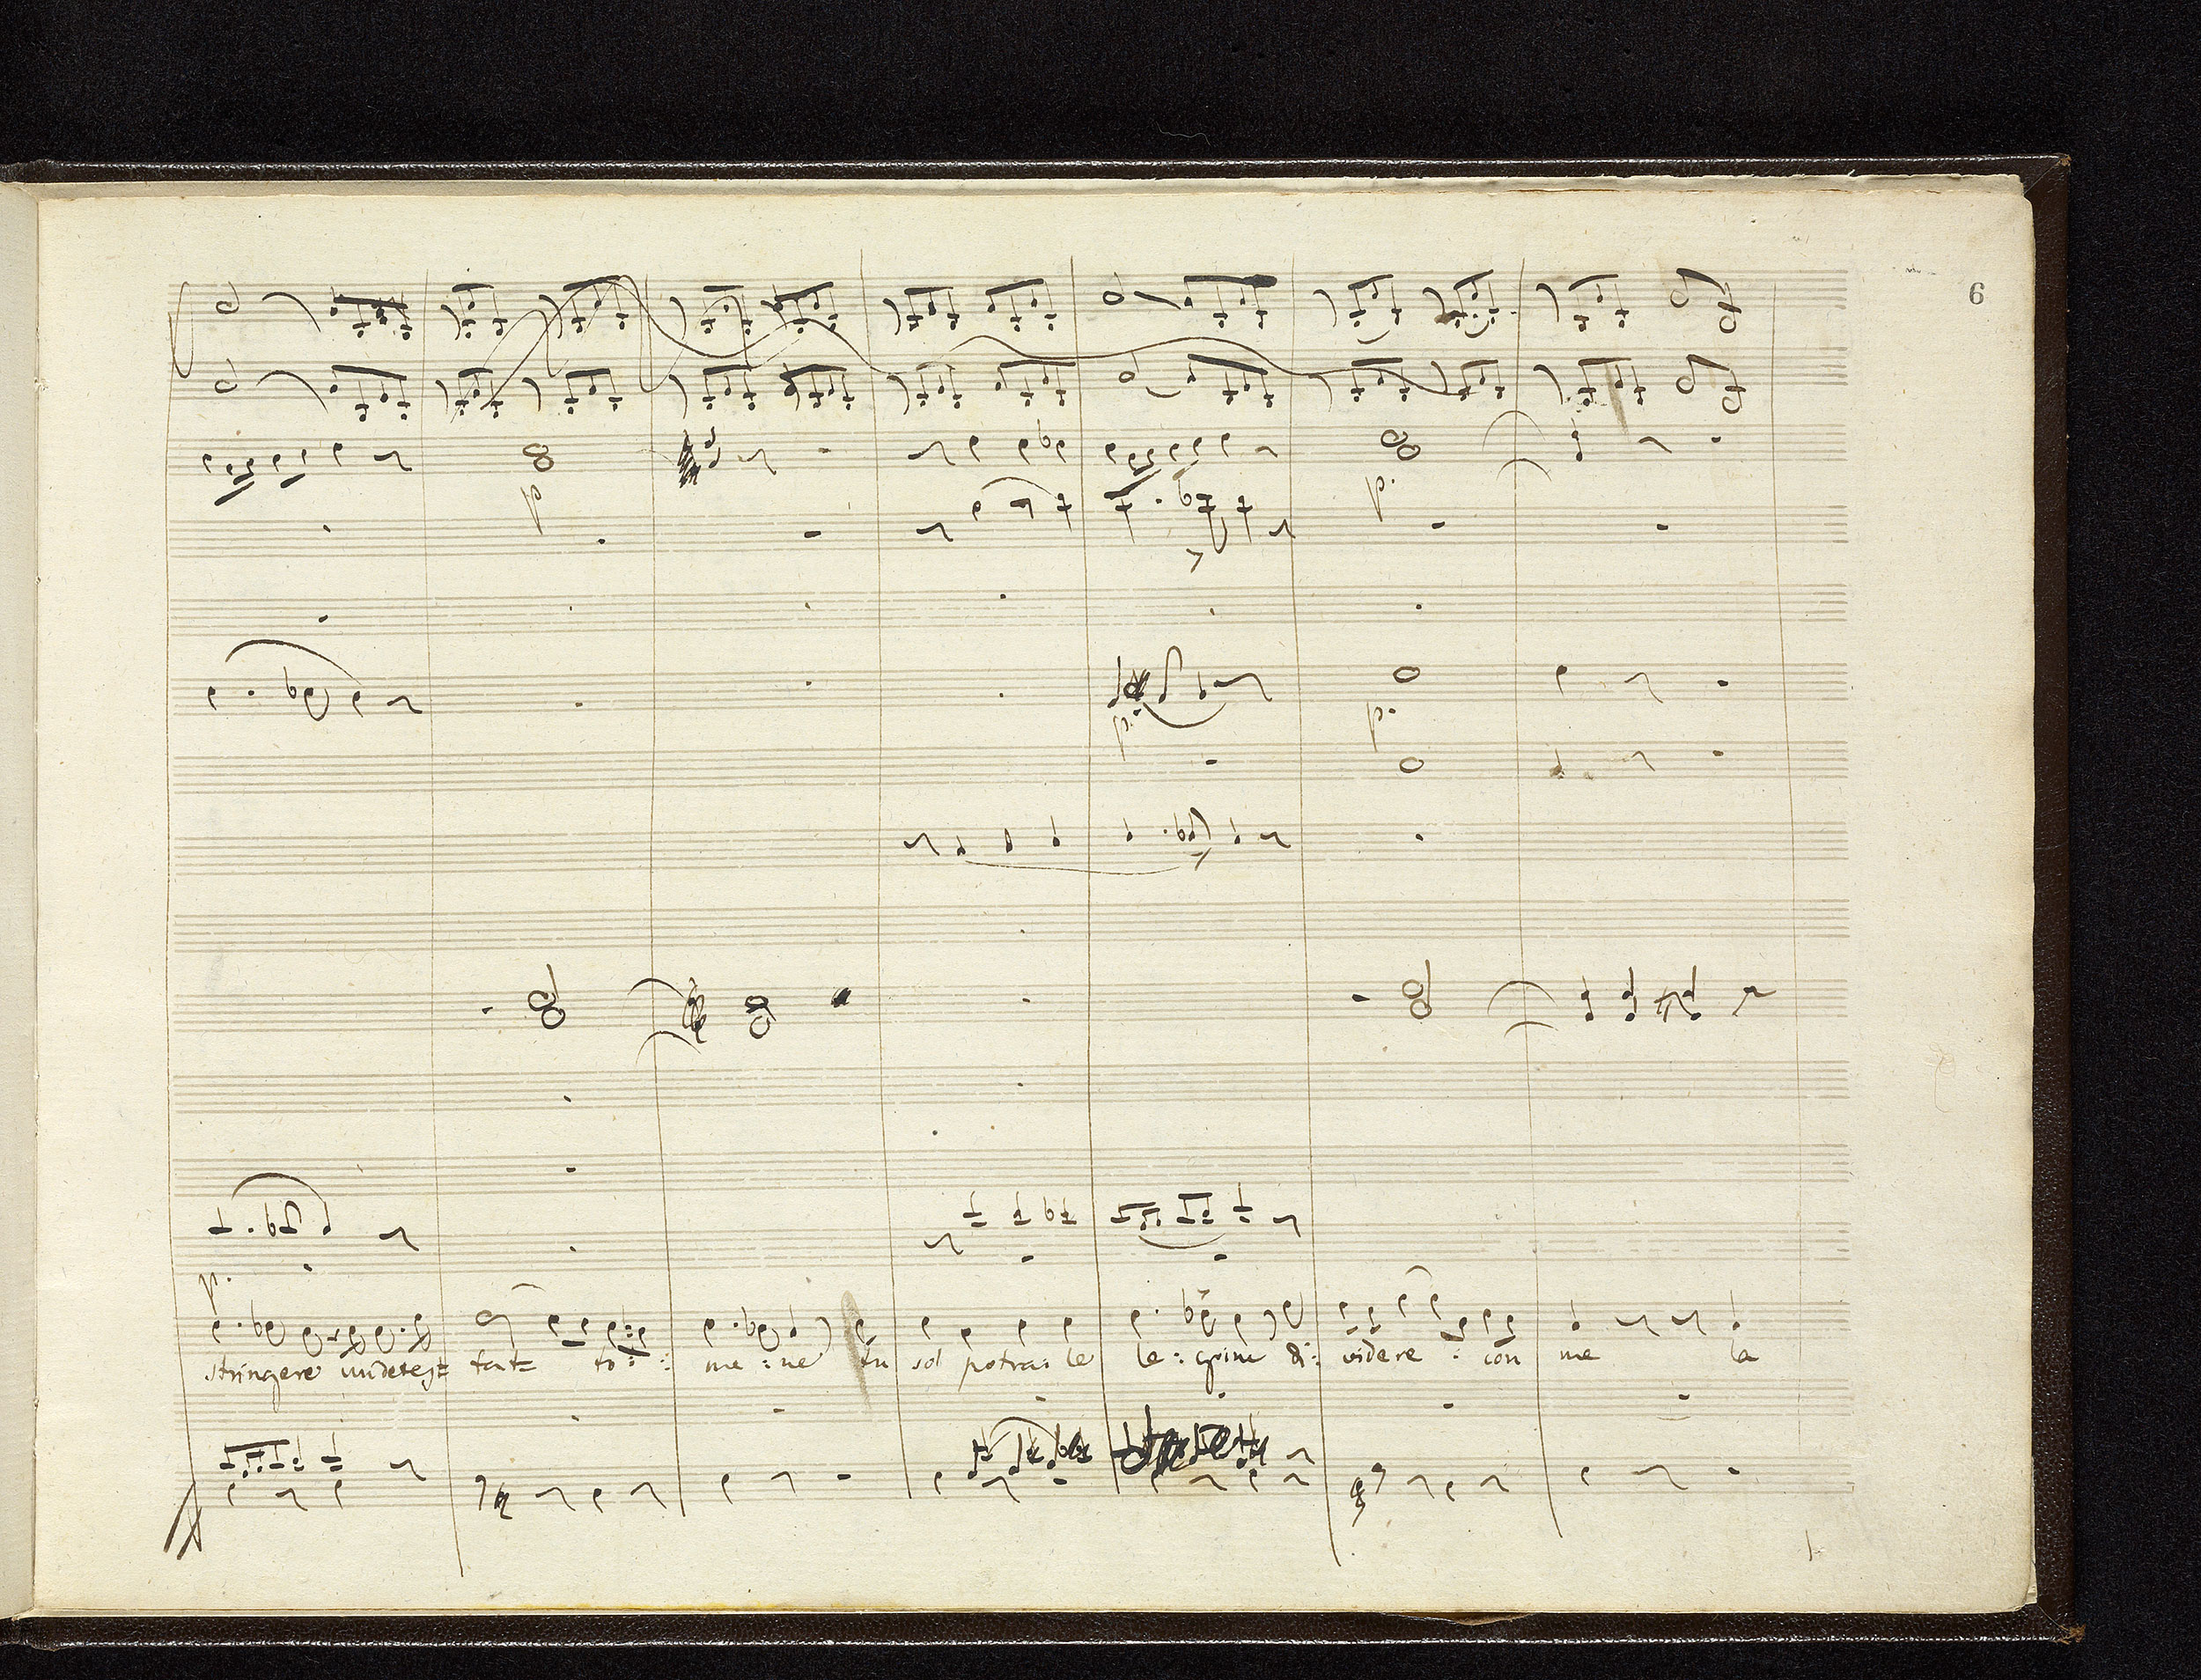 6
p
p.
p.
p.
p.
stringere un detes= tat= to : : me : ne tu sol potrai le la : grime di : videre : con me la